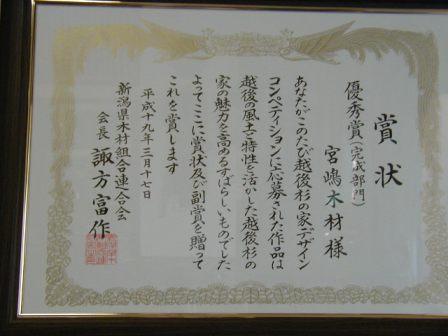 賞状
優秀賞(完成部門)
宮嶋木材様
あなたがこのたび越後杉の家デザイン
コンペティションに応募された作品は
越後の風土と特性を活かした越後杉の
家の魅力を高めるすばらしいものでした
よってここに賞状及び副賞を贈って
これを賞します
平成十九年三月十七日
新潟県木材組合連合会
会長 諏方富作